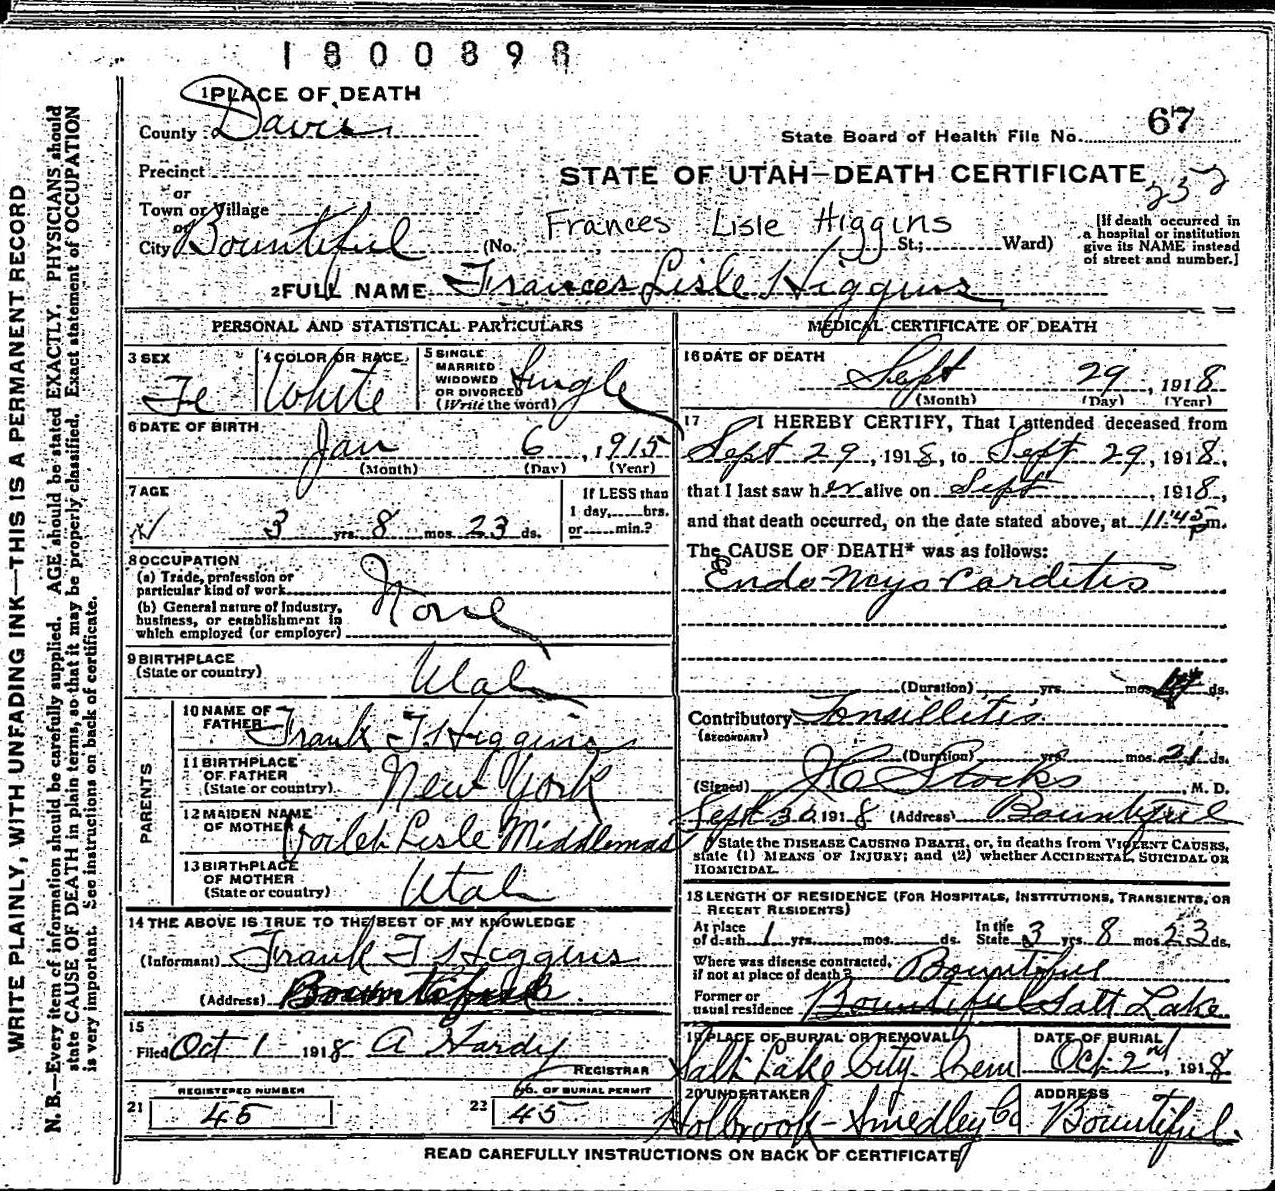 1800898
1 PLACE OF DEATH
County Davis
State Board of Health File No. 67
Precinct
STATE OF UTAH—DEATH CERTIFICATE
252
or
Town or Village
or
City Bountiful (No. Frances Lisle Higgins St.; Ward)
[If death occurred in
a hospital or institution
give its NAME instead
of street and number.]
2 FULL NAME Frances Lisle Higgins
PERSONAL AND STATISTICAL PARTICULARS
3 SEX Fe
4 COLOR OR RACE White
5 SINGLE
MARRIED
WIDOWED
OR DIVORCED
(Write the word) Single
6 DATE OF BIRTH
Jan 6, 1915
(Month) (Day) (Year)
7 AGE
3 yrs. 8 mos. 23 ds.
If LESS than
1 day, hrs.
or min.?
8 OCCUPATION
(a) Trade, profession or
particular kind of work
(b) General nature of Industry,
business, or establishment in
which employed (or employer)
None
9 BIRTHPLACE
(State or country) Utah
PARENTS
10 NAME OF
FATHER Frank T. Higgins
11 BIRTHPLACE
OF FATHER
(State or country) New York
12 MAIDEN NAME
OF MOTHER Lisle Middlemas
13 BIRTHPLACE
OF MOTHER
(State or country) Utah
14 THE ABOVE IS TRUE TO THE BEST OF MY KNOWLEDGE
(Informant) Frank T Higgins
(Address) Bountiful
15
Filed Oct 1 1918 A Hardy
REGISTRAR
REGISTERED NUMBER
21 45
NO. OF BURIAL PERMIT
22 45
MEDICAL CERTIFICATE OF DEATH
16 DATE OF DEATH
Sept 29, 1918
(Month) (Day) (Year)
17 I HEREBY CERTIFY, That I attended deceased from
Sept 29, 1918, to Sept 29, 1918,
that I last saw her alive on Sept, 1918,
and that death occurred, on the date stated above, at 11:45 p m.
The CAUSE OF DEATH* was as follows:
Endo-Myo-carditis
(Duration) yrs. mos. ds.
Contributory Tonsillitis
(SECONDARY)
(Duration) yrs. mos. 21 ds.
(Signed) J C Stocks, M. D.
Sept 30 1918 (Address) Bountiful
State the DISEASE CAUSING DEATH, or, in deaths from VIOLENT CAUSES,
state (1) MEANS OF INJURY; and (2) whether ACCIDENTAL, SUICIDAL OR
HOMICIDAL.
18 LENGTH OF RESIDENCE (FOR HOSPITALS, INSTITUTIONS, TRANSIENTS, OR
RECENT RESIDENTS)
At place
of death 1 yrs. mos. ds.
In the
State 3 yrs 8 mos 23 ds.
Where was disease contracted,
if not at place of death? Bountiful
Former or
usual residence Bountiful Salt Lake
19 PLACE OF BURIAL OR REMOVAL
Salt Lake City Cem
DATE OF BURIAL
Oct 2nd, 1918
20 UNDERTAKER
Holbrook-Smedley Co
ADDRESS
Bountiful.
READ CAREFULLY INSTRUCTIONS ON BACK OF CERTIFICATE
WRITE PLAINLY, WITH UNFADING INK—THIS IS A PERMANENT RECORD
N. B.—Every item of information should be carefully supplied. AGE should be stated EXACTLY. PHYSICIANS should
state CAUSE OF DEATH in plain terms, so that it may be properly classified. Exact statement of OCCUPATION
is very important. See instructions on back of certificate.